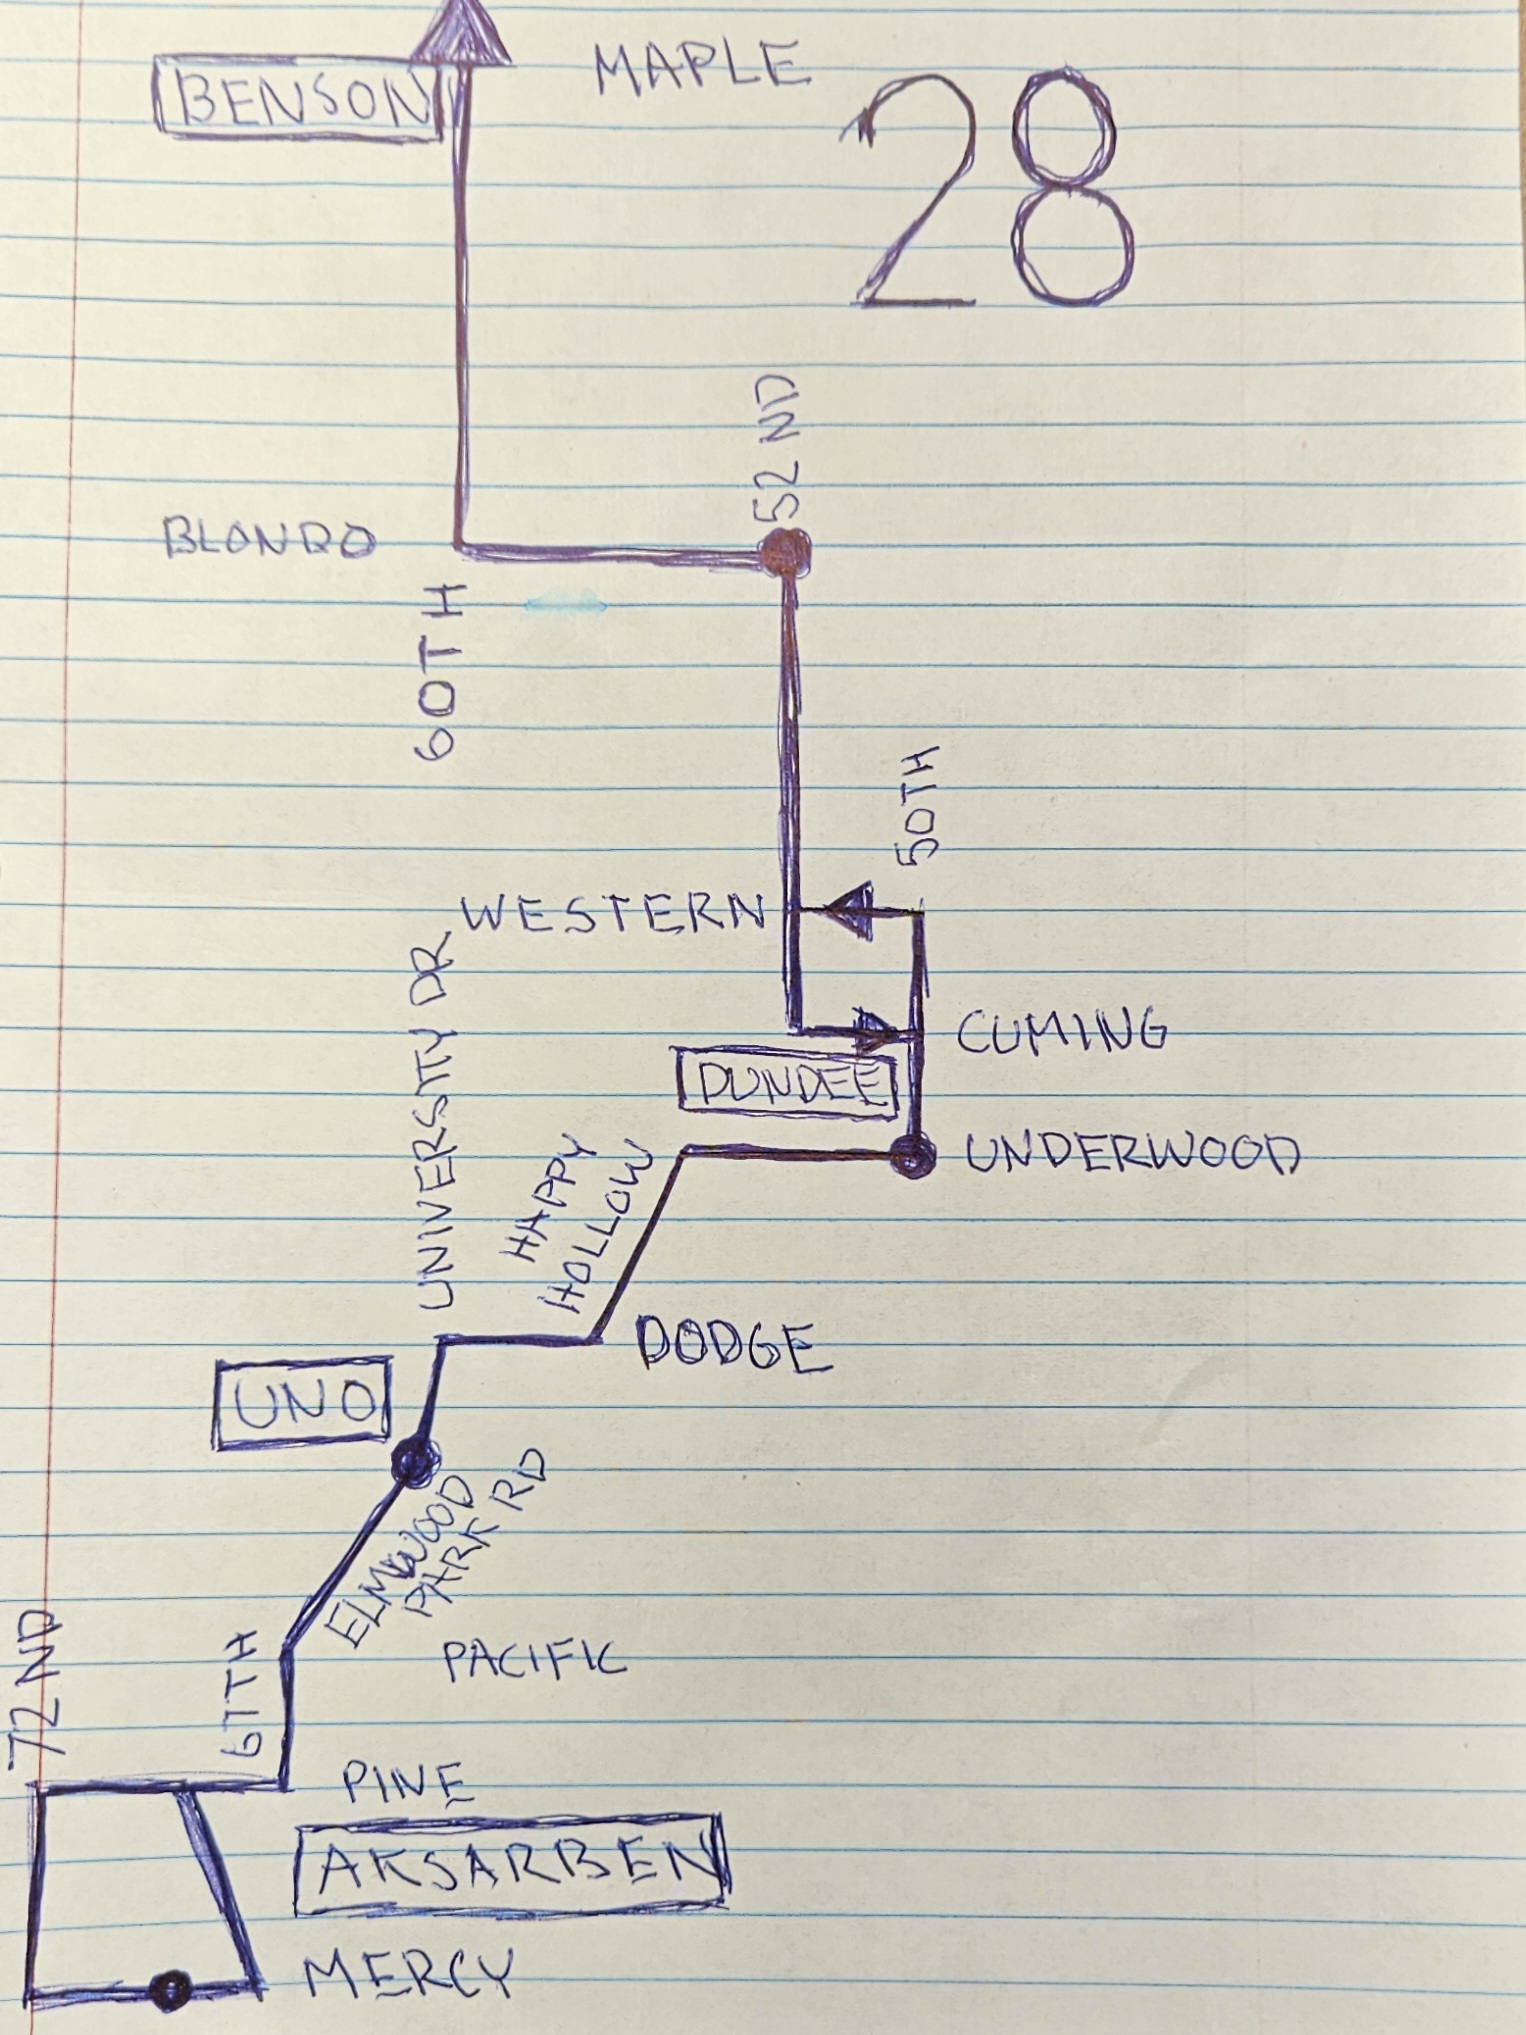 MAPLE
BENSON
28
52 ND
BLONDO
60TH
50TH
WESTERN
UNIVERSITY DR
CUMING
DUNDEE
UNDERWOOD
HAPPY
HOLLOW
DODGE
UNO
ELMWOOD
PARK RD
PACIFIC
72 ND
67TH
PINE
AKSARBEN
MERCY